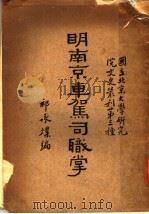 國立北京大學研究
院文史叢刊第三種
明南京車駕司職掌
祁承㸁編